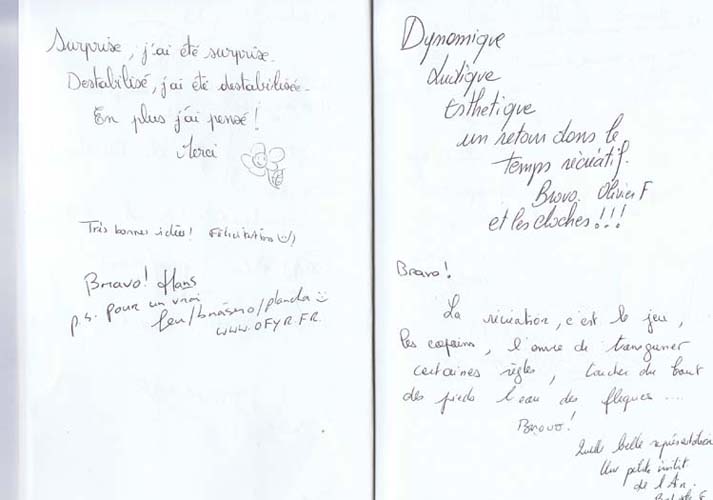 Surprise, j'ai été surprise.
Destabilisé, j'ai été destabilisée.
En plus j'ai pensé !
Merci
Très bonnes idées! Félicitations
Bravo! Hans
p.s. pour un vrai
feu/brasero/plancha
www.OFYR.FR
Dynamique
Ludique
Esthetique
un retour dans le
temps récréatif.
Bravo. Olivier F
et les cloches !!!
Bravo!
La récréation, c'est le jeu,
les copains, l'envie de transgresser
certaines règles, toucher du bout
des pieds l'eau des flaques ....
Bravo!
Quelle belle représentation
Une petite
de l'An.